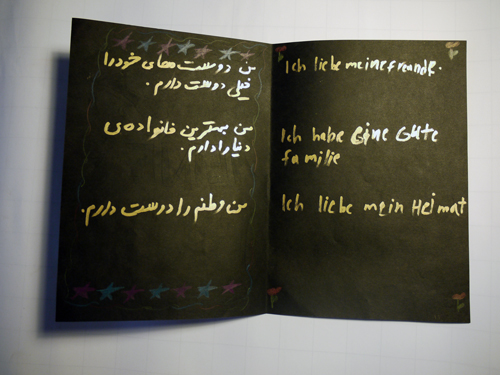 من دوست های خود را
خیلی دوست دارم.
من بهترین خانواده‌ی
دنیا را دارم.
من وطنم را دوست دارم.
Ich liebe meine freande.
Ich habe Eine Gute
familie
Ich liebe mein Heimat